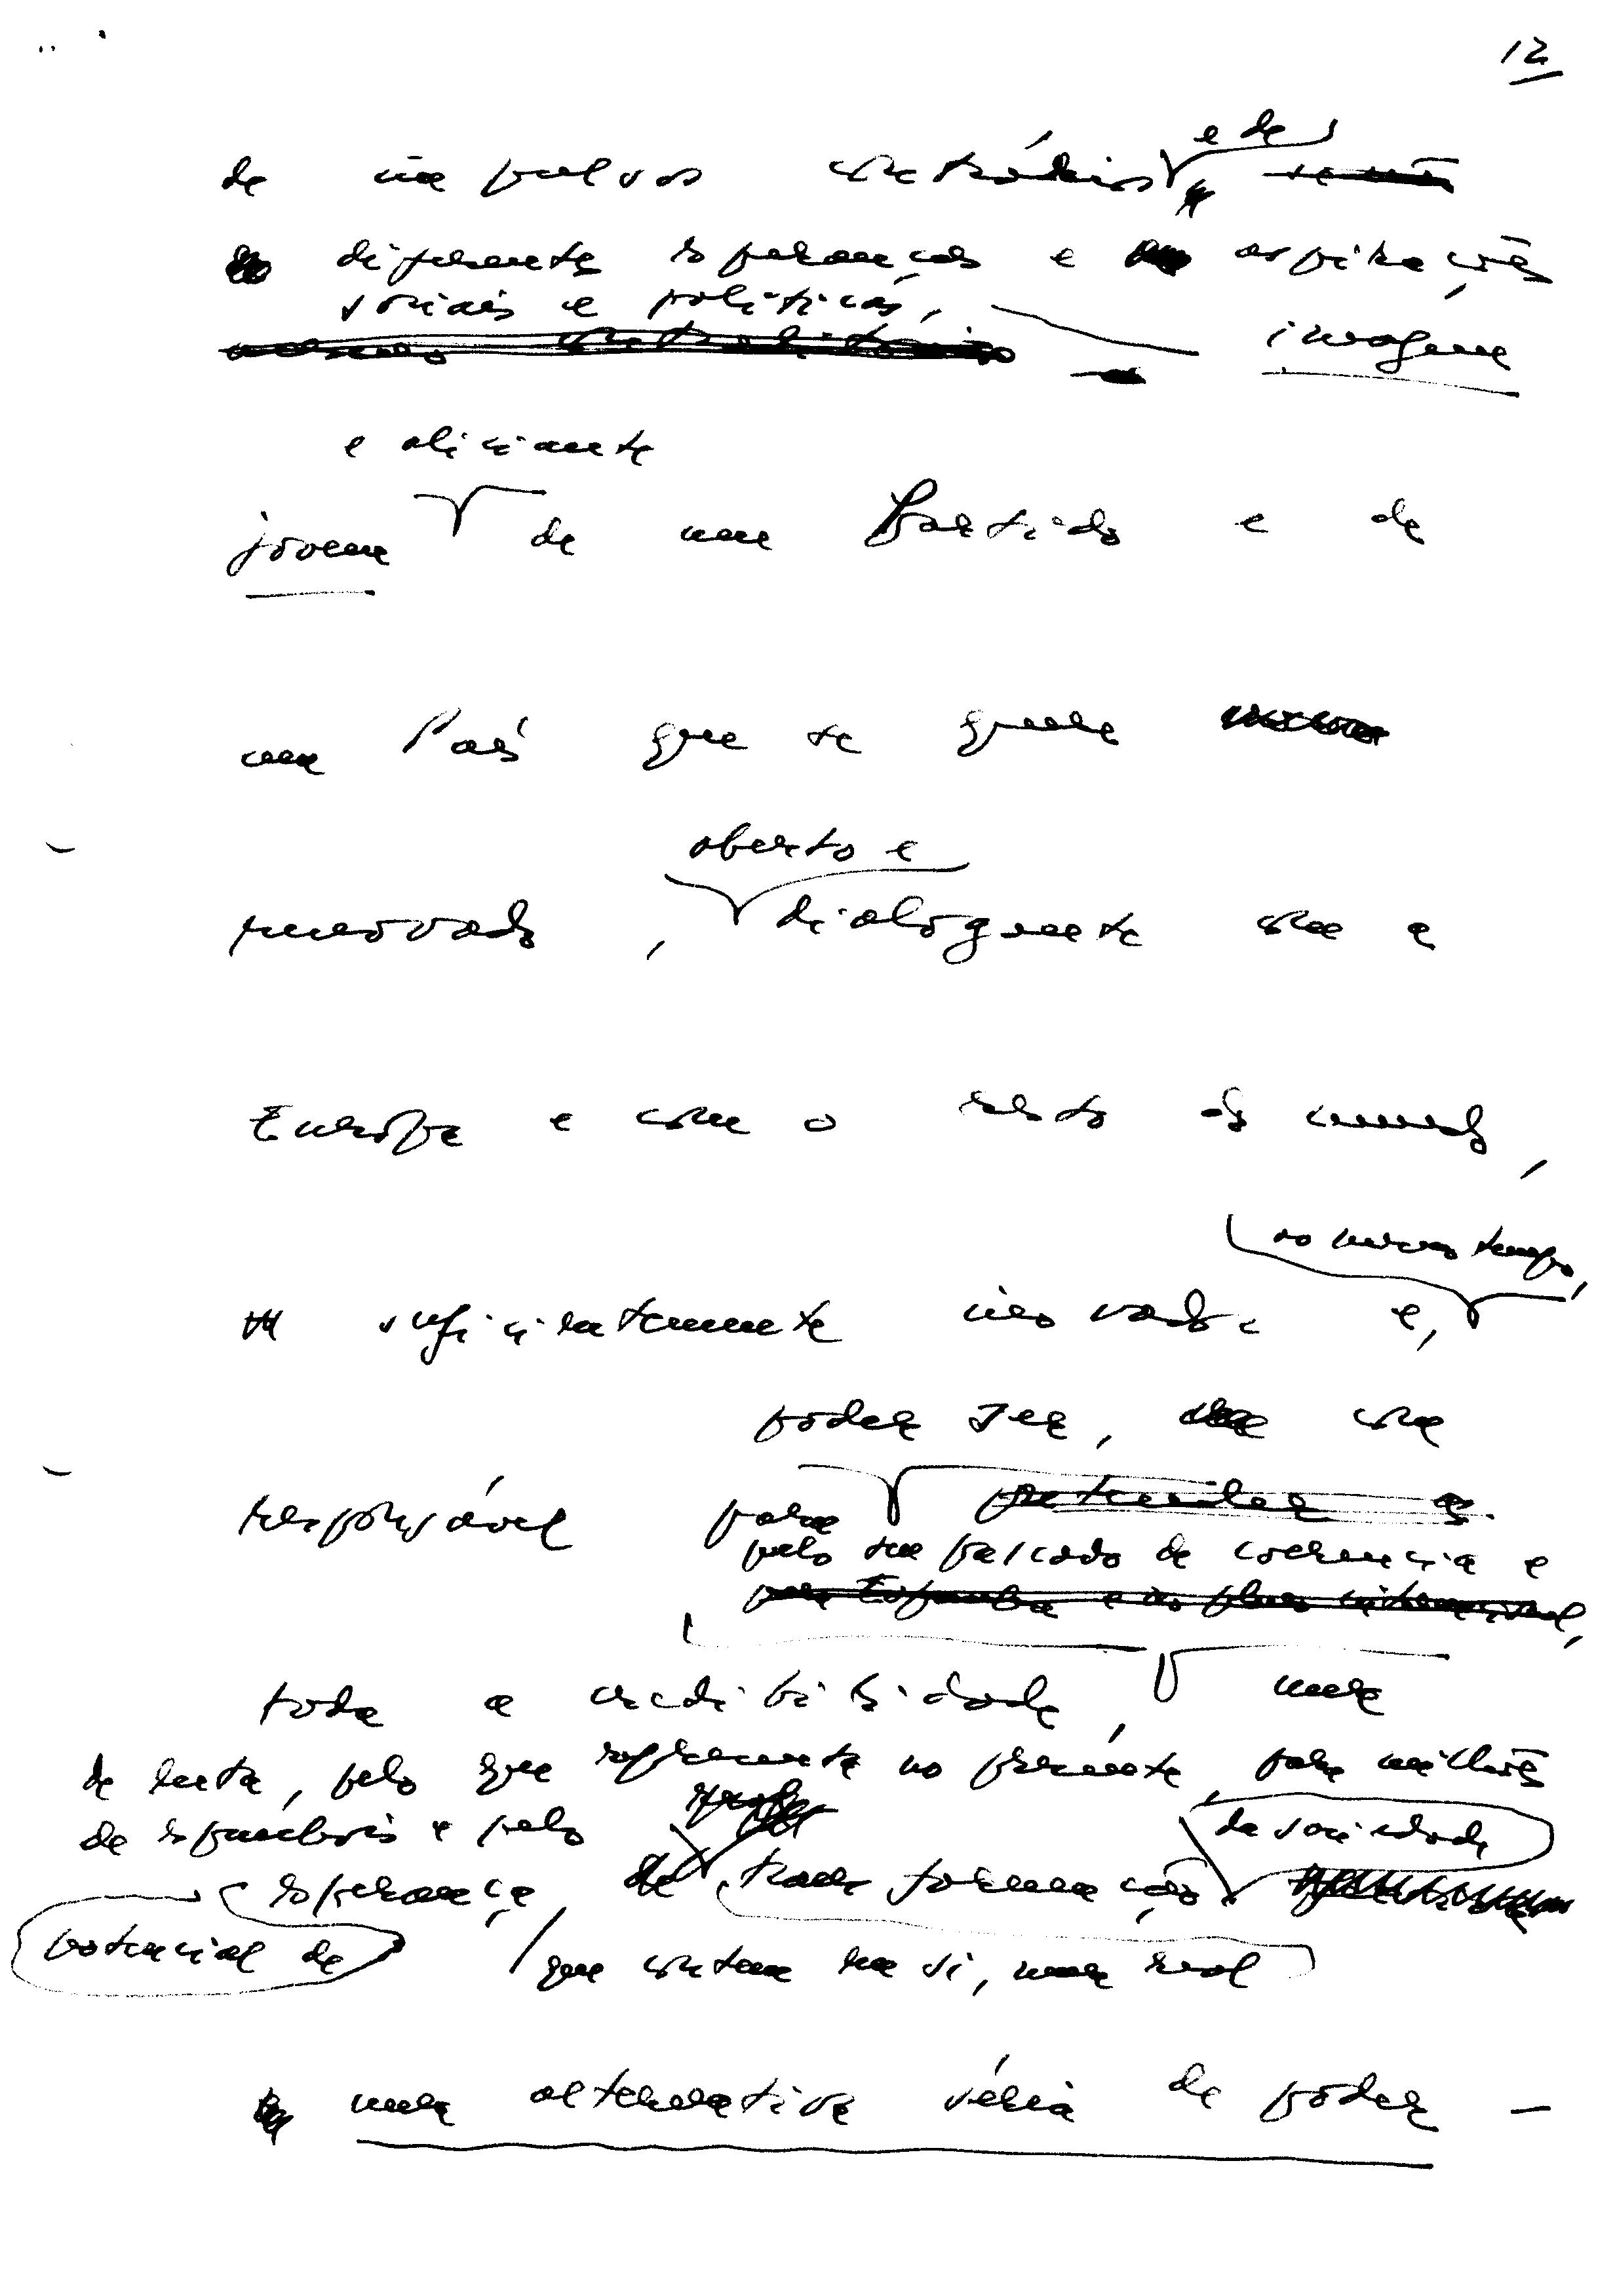 12
e de
de impulsos contraditórios
diferentes esperanças e aspirações
sociais e políticas, imagem
e aliciante
jovem de um Partido e de
um País que se quer
aberto e
renovado, dialogante com a
Europa e com o resto do mundo,
ao mesmo tempo,
suficientemente inovador e,
poder ser, com
responsável para
pelo seu passado de coerência e
toda a credibilidade, uma
de luta, pelo que representa no presente, para milhões
de espanhóis e pelo
da sociedade
esperança, de transformação
potencial de que contem em si, uma real
uma alternativa séria de poder -